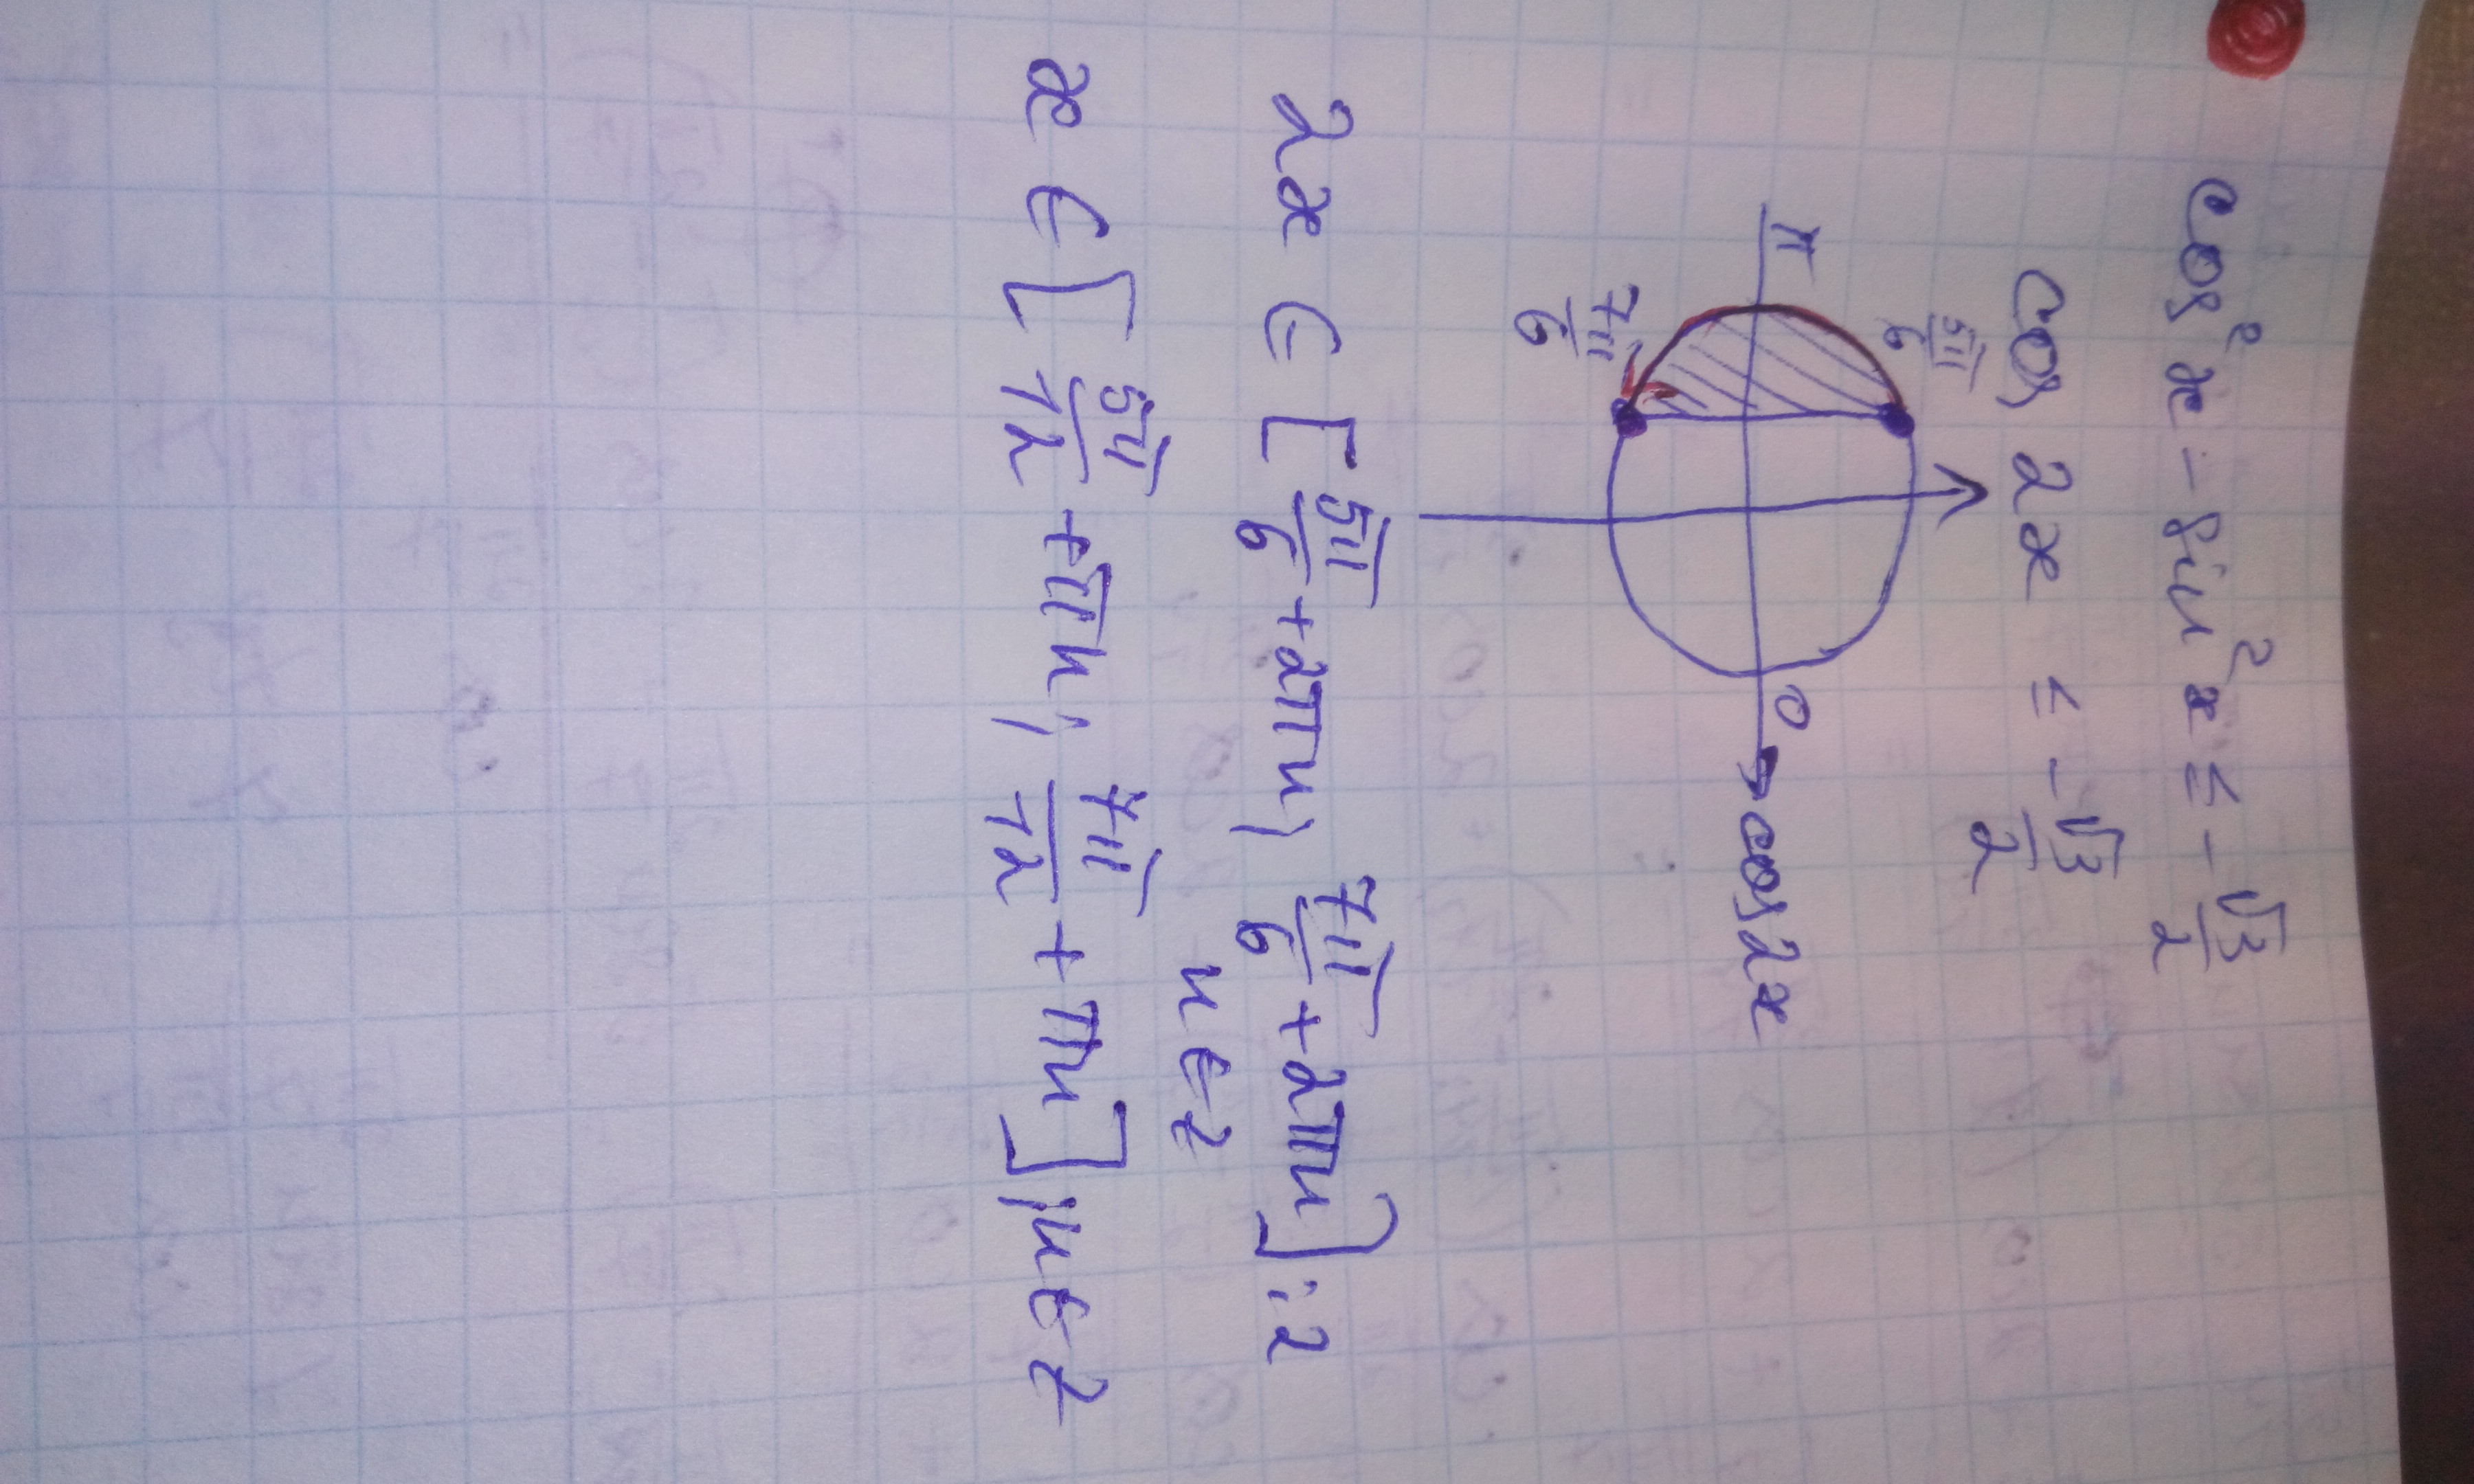 cos²x - sin²x ≤ -√3/2
cos 2x ≤ -√3/2
5π/6
π
0
cos2x
7π/6
2x ∈ [5π/6 + 2πn; 7π/6 + 2πn] :2
n ∈ z
x ∈ [5π/12 + πn; 7π/12 + πn]; n ∈ z